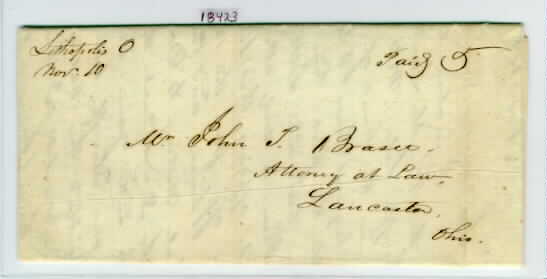 18423
Lithopolis O
Nov. 10
Paid 5
Mr John T. Brasee.
Attorney at Law,
Lancaster,
Ohio.